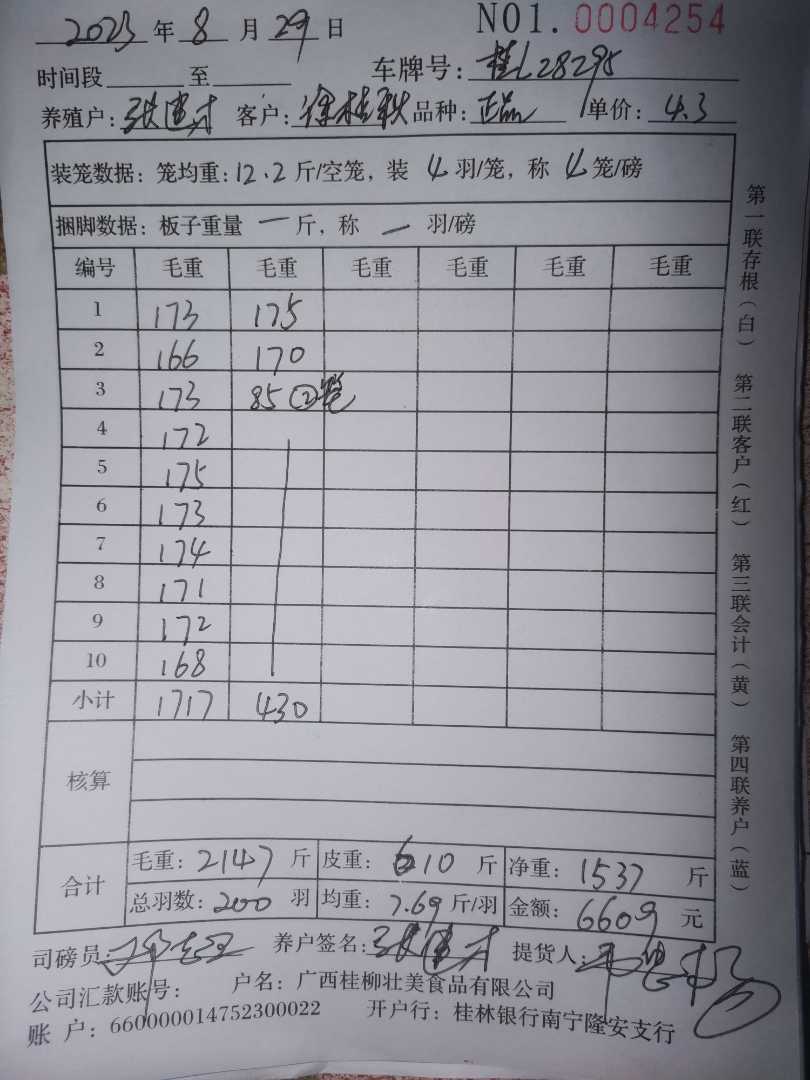 2023年8月29日 NO1.0004254
时间段 至 车牌号：桂L28295
养殖户：张建才 客户：徐桂秋 品种：正品 单价：4.3
装笼数据：笼均重：12.2斤/空笼，装4羽/笼，称4笼/磅
捆脚数据：板子重量一斤，称一羽/磅
编号 毛重 毛重 毛重 毛重 毛重 毛重
1 173 175
2 166 170
3 173 85②笼
4 172
5 175
6 173
7 174
8 171
9 172
10 168
小计 1717 430
核算
合计 毛重：2147斤 皮重：610斤 净重：1537斤
总羽数：200羽 均重：7.69斤/羽 金额：6609元
司磅员： 养户签名：张建才 提货人：
公司汇款账号： 户名：广西桂柳壮美食品有限公司
账 户：660000014752300022 开户行：桂林银行南宁隆安支行
第一联存根（白） 第二联客户（红） 第三联会计（黄） 第四联养户（蓝）